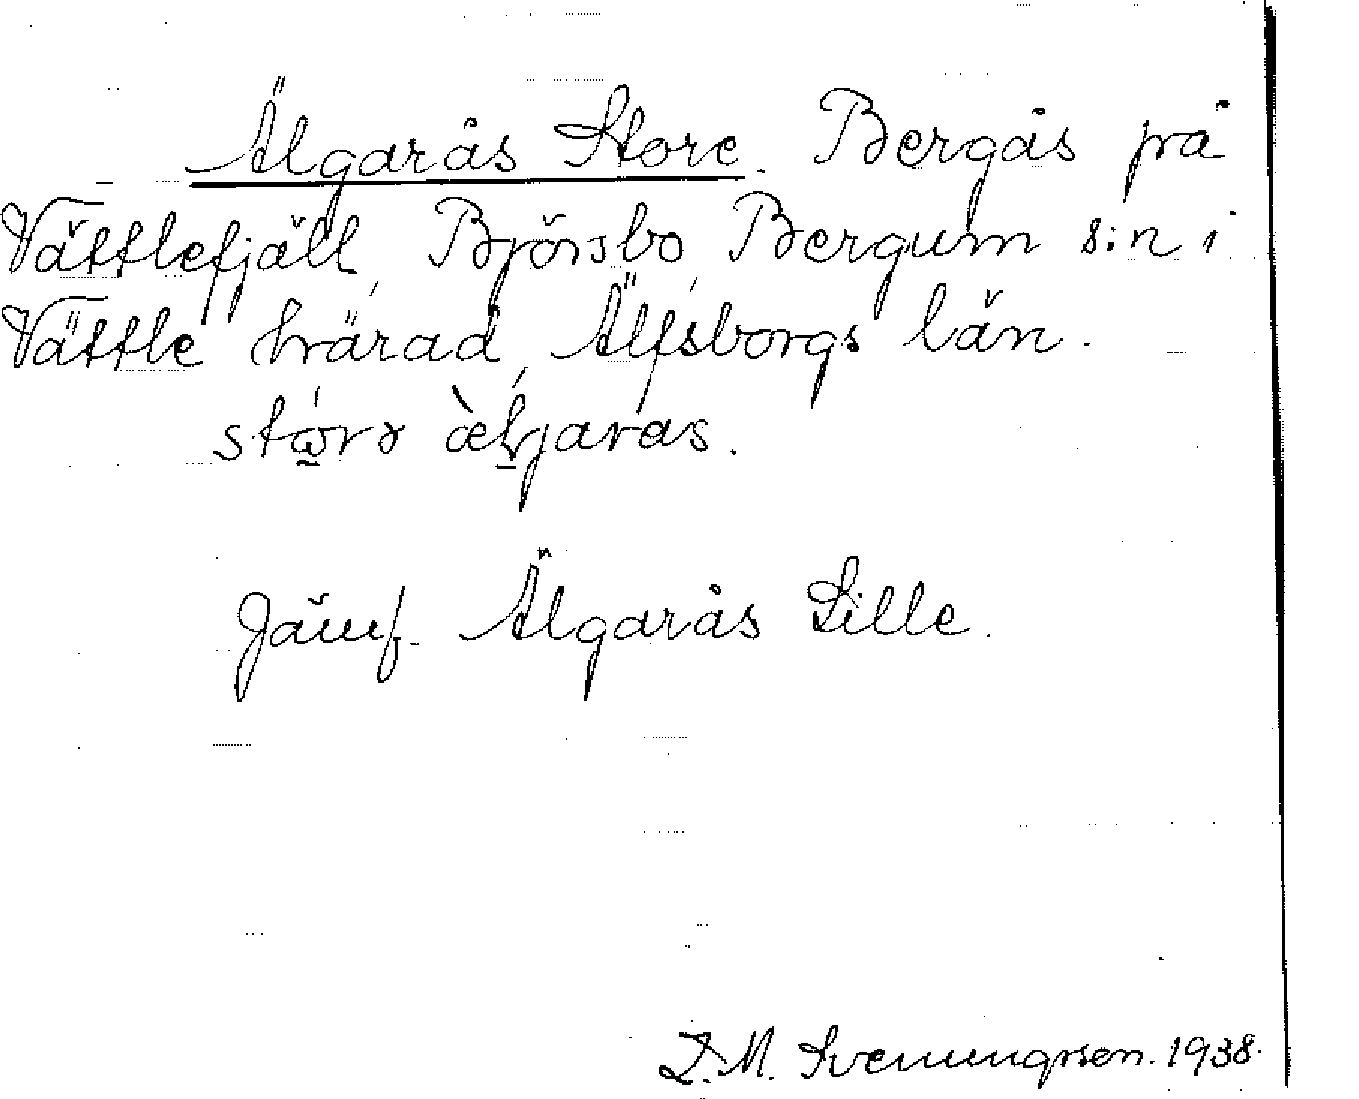 Älgarås Store. Bergås på
Vättlefjäll, Björsbo, Bergum s:n i
Vättle härad, Älfsborgs län.
Jämf. Älgarås Lille.
L. M. Svenungsson. 1938.